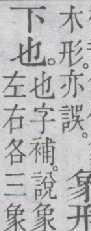 木形。亦誤。
象形
下也。
也字補。說象
左右各三象